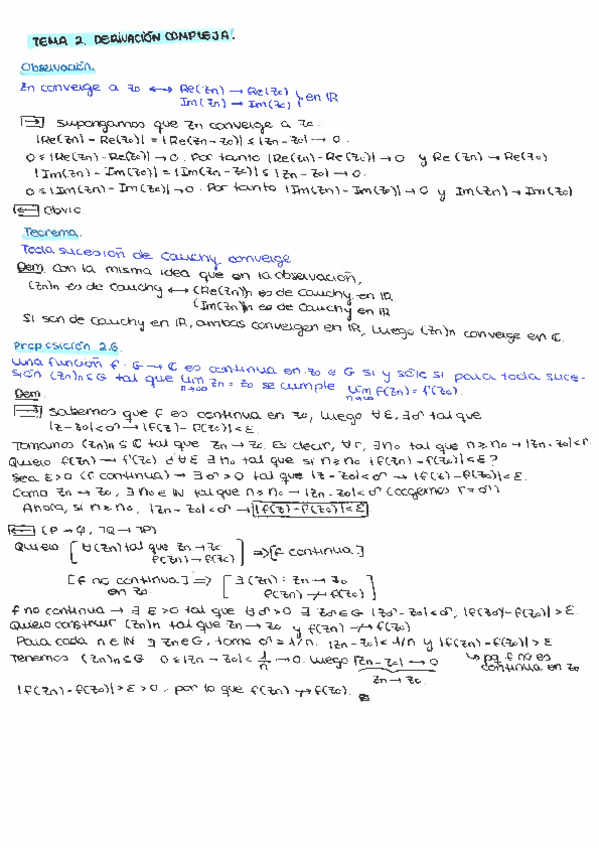 TEMA 2. DERIVACIÓN COMPLEJA.
Observación.
Zn converge a z0 ↔ Re(Zn) → Re(z0)
Im(Zn) → Im(z0) } en IR
→ Supongamos que Zn converge a z0.
|Re(Zn) - Re(z0)| = |Re(Zn - z0)| ≤ |Zn - z0| → 0.
0 ≤ |Re(Zn) - Re(z0)| → 0. Por tanto |Re(Zn) - Re(z0)| → 0 y Re(Zn) → Re(z0)
|Im(Zn) - Im(z0)| = |Im(Zn - z0)| ≤ |Zn - z0| → 0.
0 ≤ |Im(Zn) - Im(z0)| → 0. Por tanto |Im(Zn) - Im(z0)| → 0 y Im(Zn) → Im(z0)
← Obvio
Teorema.
Toda sucesión de Cauchy converge.
Dem. Con la misma idea que en la observación,
(Zn)n es de Cauchy ↔ (Re(Zn))n es de Cauchy en IR
(Im(Zn))n es de Cauchy en IR
Si son de Cauchy en IR, ambas convergen en IR, luego (Zn)n converge en ℂ.
Proposición 2.6.
Una función f: G → ℂ es continua en z0 ∈ G si y sólo si para toda suce-
sión (Zn)n ⊆ G tal que lim n→∞ Zn = z0 se cumple lim n→∞ f(Zn) = f(z0).
Dem.
→ Sabemos que f es continua en z0, luego ∀ε, ∃δ tal que
|z - z0| < δ → |f(z) - f(z0)| < ε.
Tomamos (Zn)n ⊆ ℂ tal que Zn → z0. Es decir, ∀r, ∃n0 tal que n ≥ n0 → |Zn - z0| < r.
Quiero f(Zn) → f(z0) ¿∀ε ∃n0 tal que si n ≥ n0 |f(Zn) - f(z0)| < ε?
Sea ε > 0 (f continua) → ∃δ > 0 tal que |z - z0| < δ → |f(z) - f(z0)| < ε.
Como Zn → z0, ∃n0 ∈ IN tal que n ≥ n0 → |Zn - z0| < δ (cogemos r = δ)
Ahora, si n ≥ n0, |Zn - z0| < δ → |f(z) - f(z0)| < ε
← (P → Q, ¬Q → ¬P)
Quiero [ ∀(Zn) tal que Zn → z0
f(Zn) → f(z0) ] => [f continua]
[f no continua] => [ ∃(Zn): Zn → z0
en z0 f(Zn) ↛ f(z0) ]
f no continua → ∃ε > 0 tal que ∀δ > 0 ∃ zδ ∈ G |zδ - z0| < δ, |f(zδ) - f(z0)| > ε.
Quiero construir (Zn)n tal que Zn → z0 y f(Zn) ↛ f(z0)
Para cada n ∈ IN ∃ Zn ∈ G, tomo δ = 1/n. |Zn - z0| < 1/n y |f(Zn) - f(z0)| > ε
Tenemos (Zn)n ⊆ G 0 ≤ |Zn - z0| < 1/n → 0. Luego |Zn - z0| → 0
↳ pq f no es
continua en z0
Zn → z0
|f(Zn) - f(z0)| > ε > 0, por lo que f(Zn) ↛ f(z0).